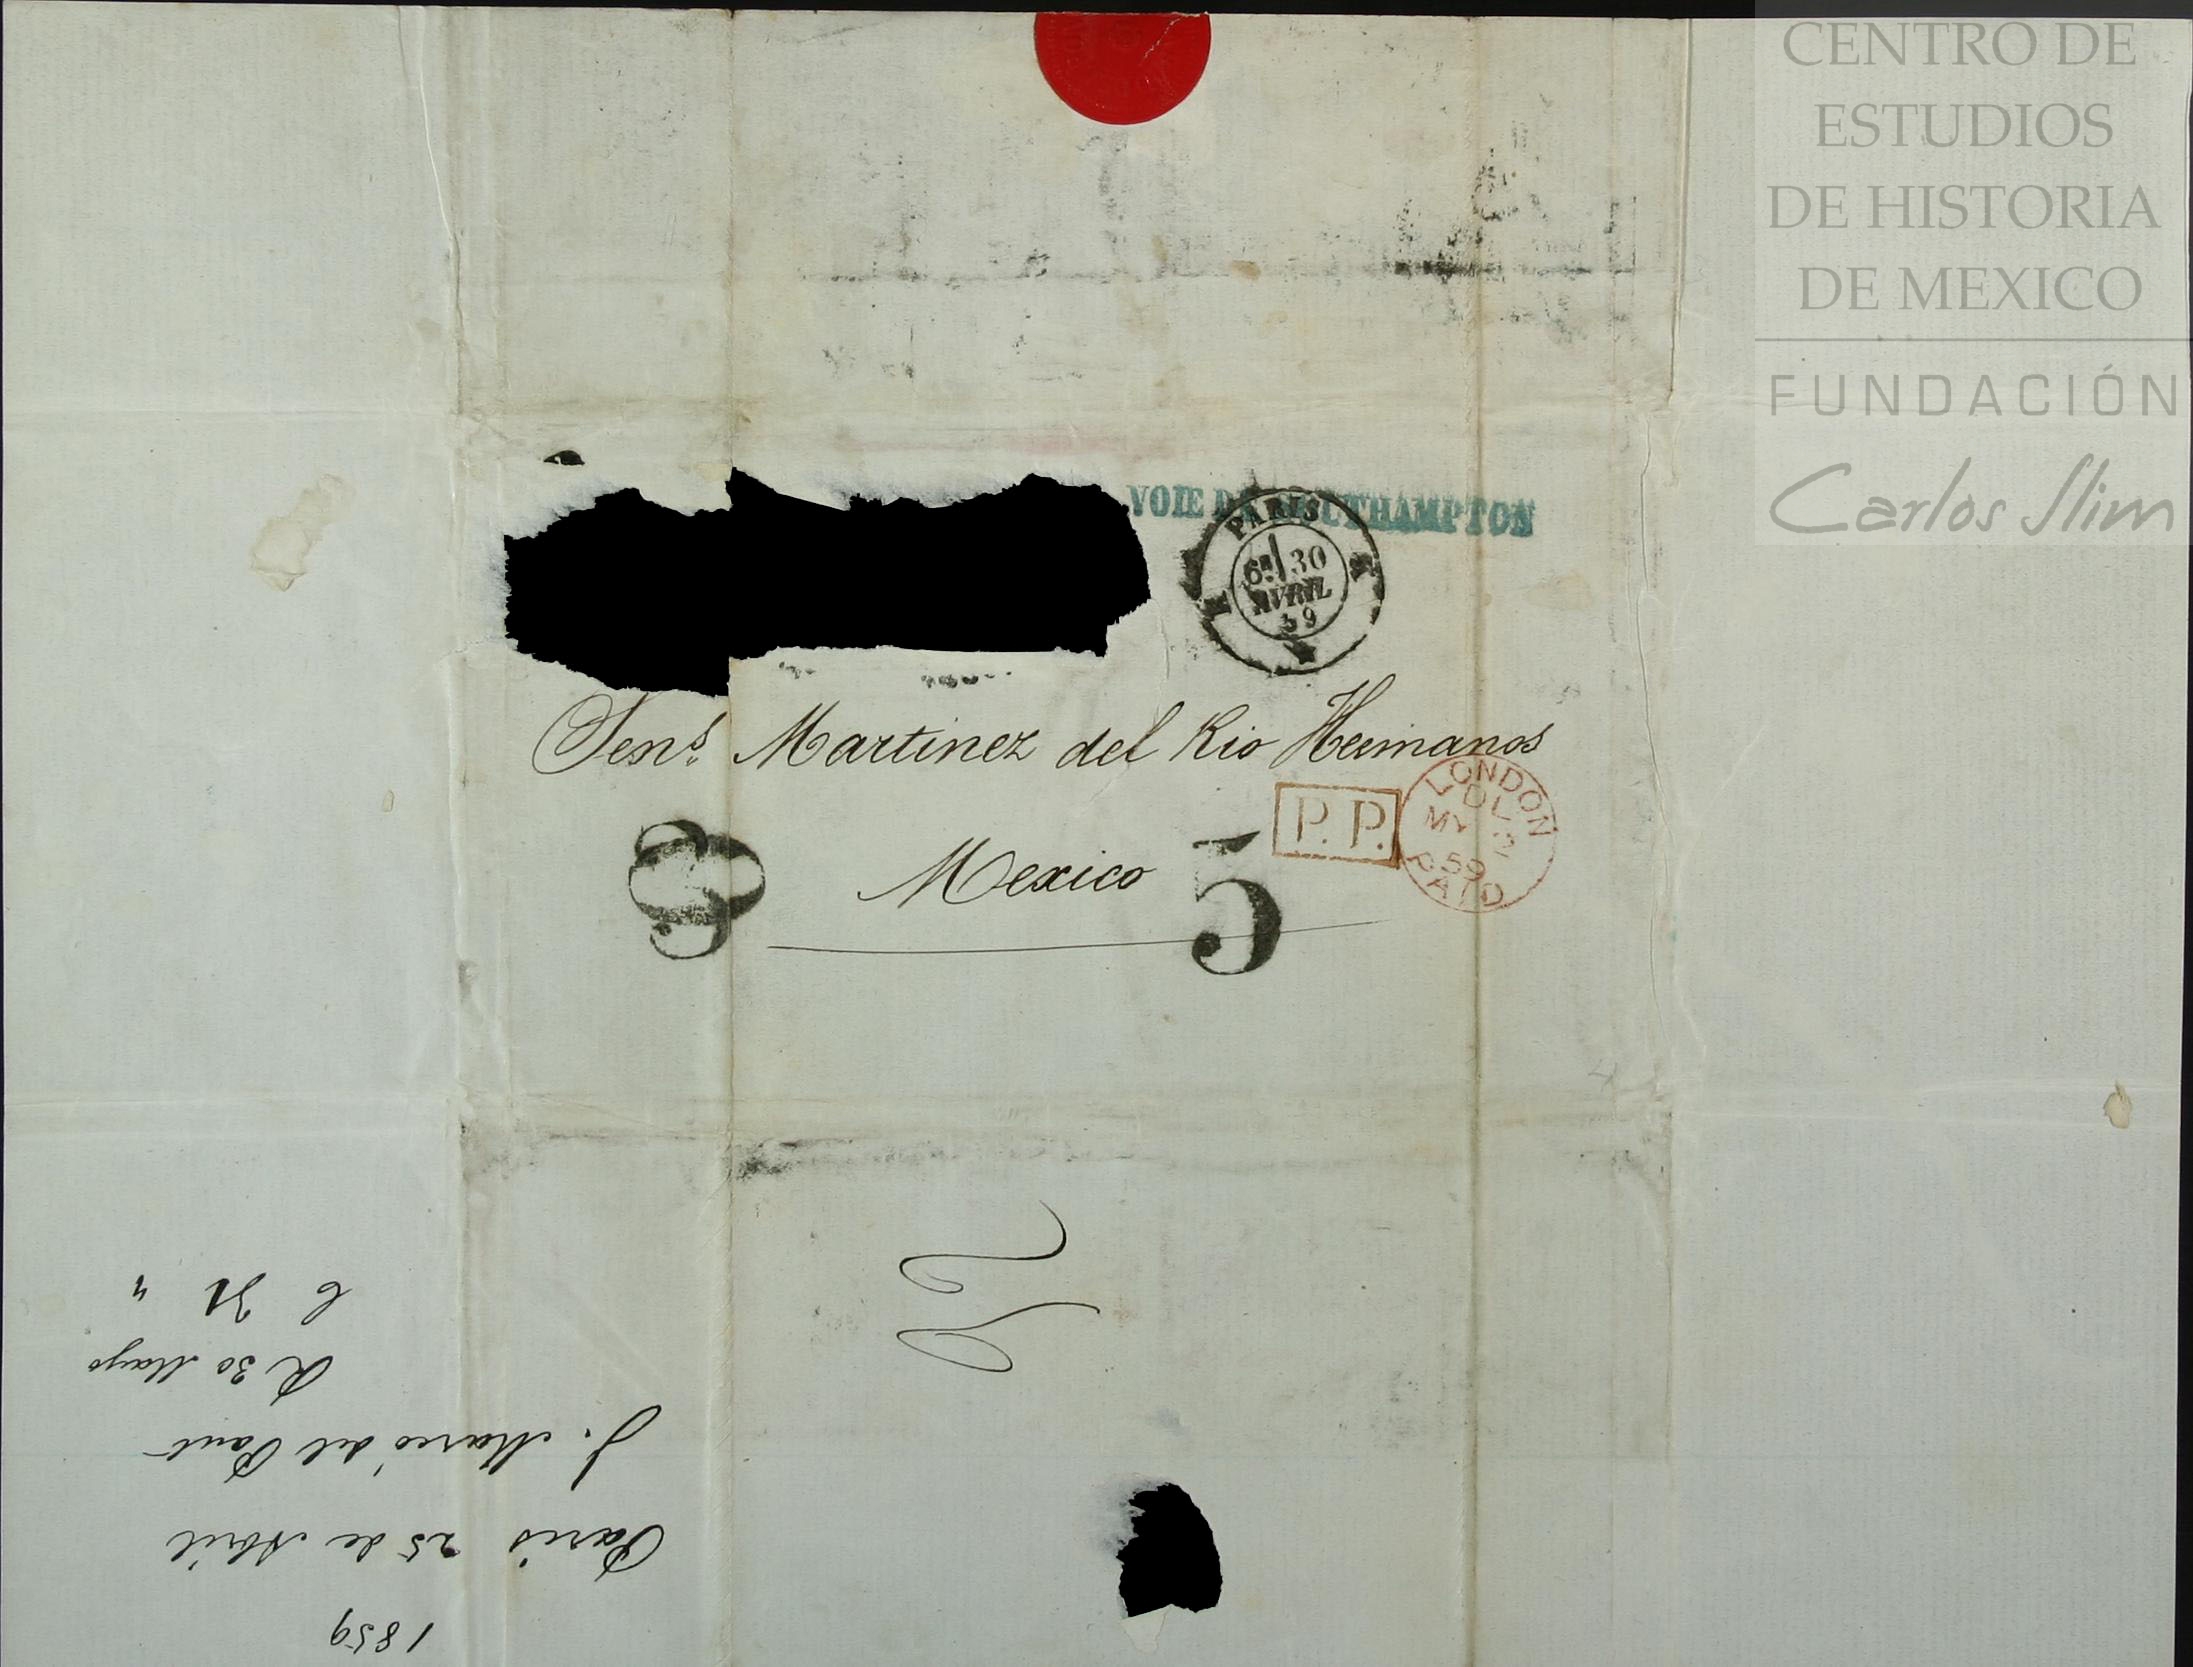 CENTRO DE
ESTUDIOS
DE HISTORIA
DE MEXICO
FUNDACIÓN
Carlos Slim
VOIE DE SOUTHAMPTON
PARIS
6E 30
AVRIL
59
Senˢ Martinez del Rio Hermanos
P.P.
LONDON
DL
MY 2
59
PAID
Mexico
8
5
1859
Paris 25 de Abril
J. Maró del Pont
R 30 Mayo
C 31 "